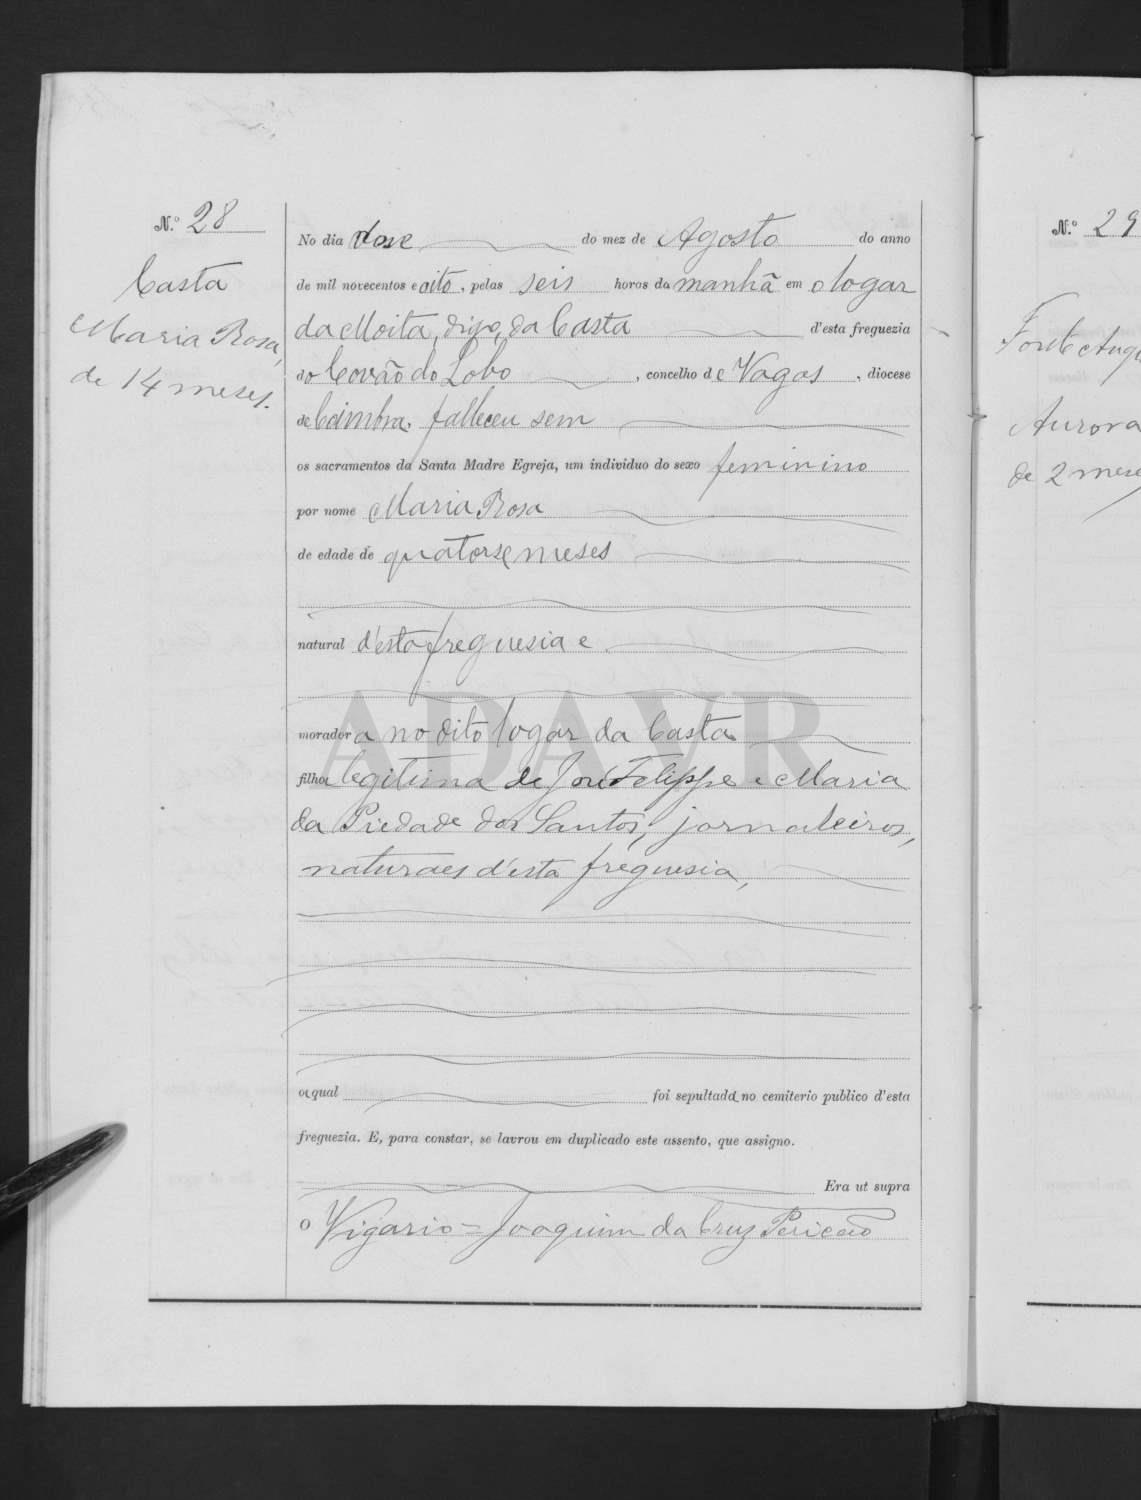 N.º 28
Casta
Maria Rosa,
de 14 meses.
No dia dose do mez de Agosto do anno
de mil novecentos e oito, pelas seis horas da manhã em o logar
da Moita, digo, da Casta d'esta freguezia
do Covão do Lobo, concelho de Vagos, diocese
de Coimbra, falleceu sem
os sacramentos da Santa Madre Egreja, um individuo do sexo feminino
por nome Maria Rosa
de edade de quatorse meses
natural d'esta freguesia e
moradora no dito logar da Casta
filha legitima de José Felippe e Maria
da Piedade dos Santos, jornaleiros,
naturaes d'esta freguesia,
a qual foi sepultada no cemiterio publico d'esta
freguezia. E, para constar, se lavrou em duplicado este assento, que assigno.
Era ut supra
O Vigario = Joaquim da Cruz Pericão
ADAVR
N.º 29
Fonte
Aurora
de 2 mese